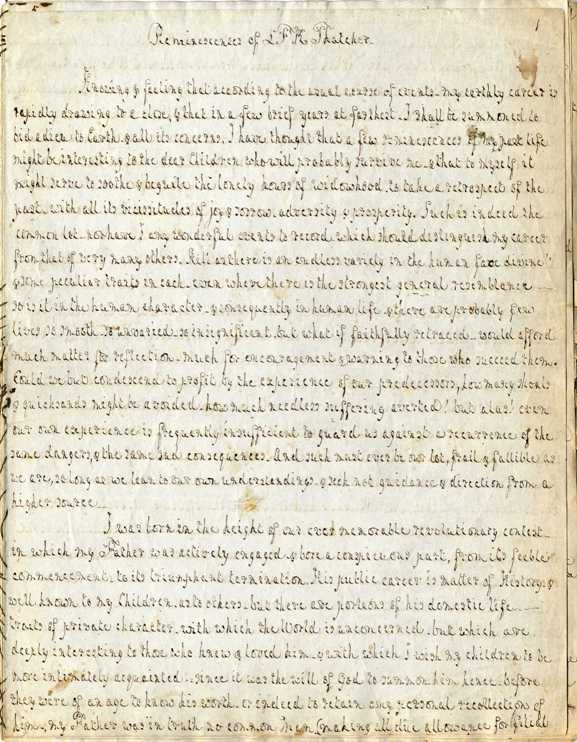 1
Reminiscenses of L F K Thatcher
Knowing & feeling that according to the usual course of events my earthly career is
rapidly drawing to a close, & that in a few brief years at farthest I shall be summoned to
bid adieu to Earth & all its concerns, I have thought that a few reminiscences of my past life
might be interesting to the dear Children who will probably survive me & that to myself it
might serve to soothe & beguile the lonely hours of widowhood to take a retrospect of the
past, with all its vicissitudes of joy & sorrow, adversity & prosperity. Such is indeed the
common lot nor have I any wonderful events to record which should distinguish my career
from that of very many others. Still as there is an endless variety in the human face divine
& some peculiar traits in each even where there is the strongest general resemblance
so is it in the human character & consequently in human life & there are probably few
lives so smooth so unvaried so insignificent, but what if faithfully retraced would afford
much matter for reflection much for encouragement & warning to those who succeed them.
Could we but condescend to profit by the experience of our predecessors, how many shoals
& quicksands might be avoided how much needless suffering averted! but alas! even
our own experience is frequently insufficient to guard us against a recurrence of the
same dangers, & the same sad consequences. And such must ever be our lot, frail & fallible as
we are, so long as we lean to our own understandings & seek not guidance & direction from a
higher source
I was born in the height of our ever memorable revolutionary contest
in which my Father was actively engaged & bore a conspicuous part, from its feeble
commencement to its triumphant termination. His public career is matter of History &
well known to my Children as to others but there are portions of his domestic life
traits of private character with which the World is unconcerned but which are
deeply interesting to those who knew & loved him & with which I wish my children to be
more intimately acquainted since it was the will of God to summon him hence before
they were of an age to know his worth or indeed to retain any personal recollections of
him, my Father was in truth no common Man (making all due allowance for filial